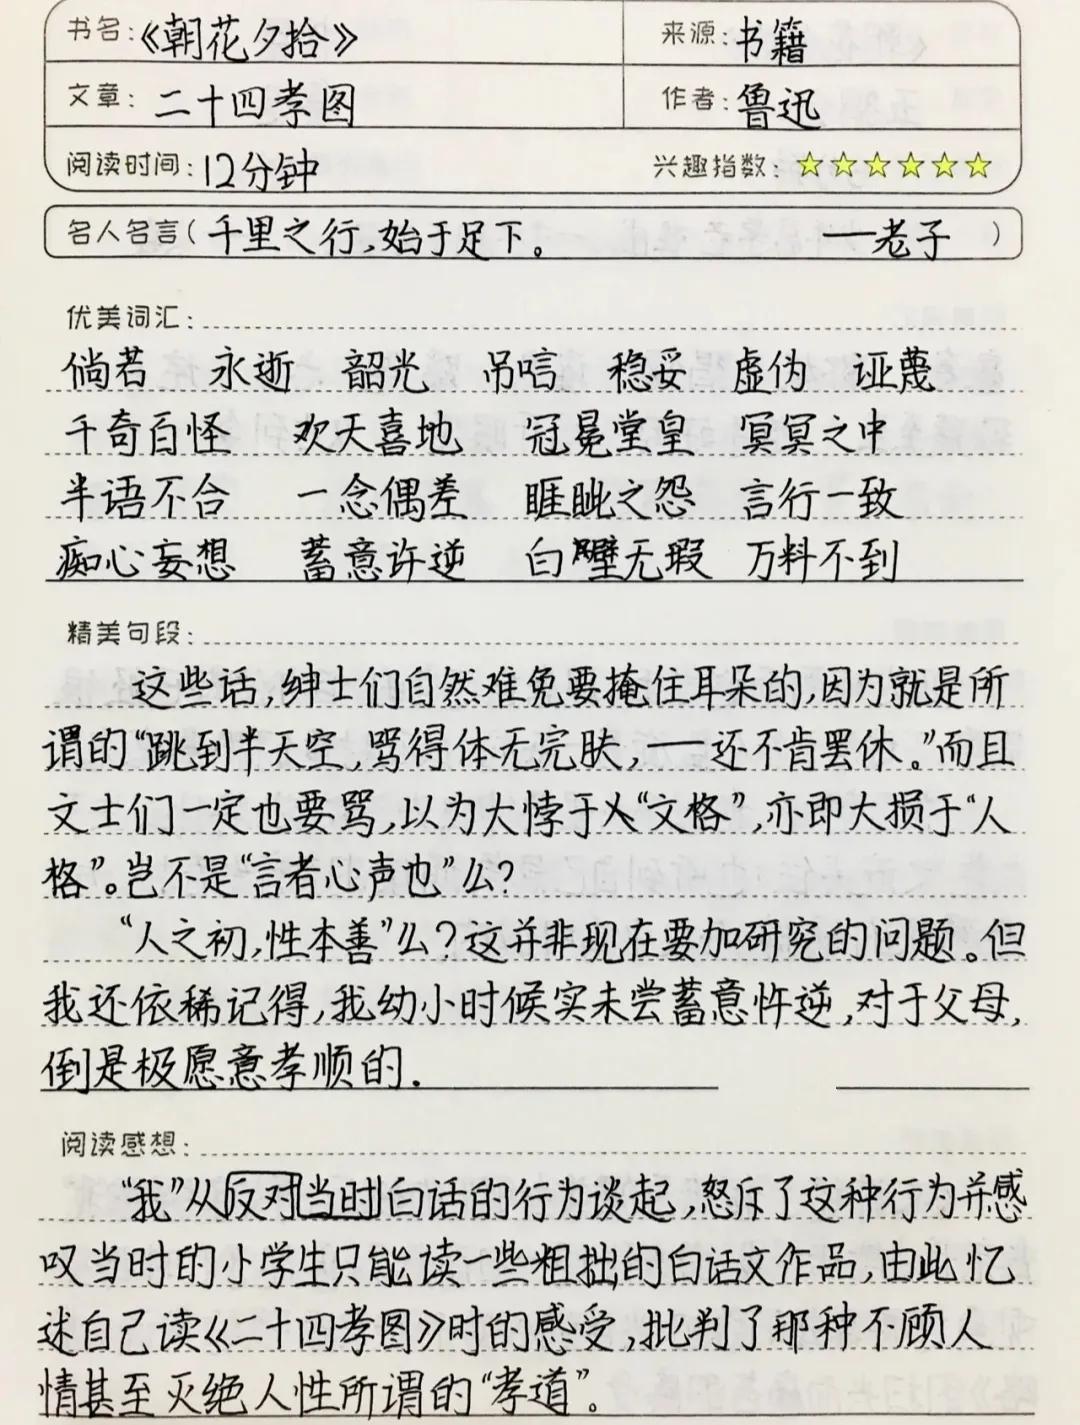 书名:《朝花夕拾》 来源:书籍
文章: 二十四孝图 作者:鲁迅
阅读时间:12分钟 兴趣指数:☆☆☆☆☆☆
名人名言(千里之行,始于足下。 ——老子 )
优美词汇:
倘若 永逝 韶光 吊唁 稳妥 虚伪 诬蔑
千奇百怪 欢天喜地 冠冕堂皇 冥冥之中
半语不合 一念偶差 睚眦之怨 言行一致
痴心妄想 蓄意许逆 白璧无瑕 万料不到
精美句段:
这些话,绅士们自然难免要掩住耳朵的,因为就是所
谓的“跳到半天空,骂得体无完肤,——还不肯罢休。”而且
文士们一定也要骂,以为大悖于“文格”,亦即大损于“人
格”。岂不是“言者心声也”么?
“人之初,性本善”么?这并非现在要加研究的问题。但
我还依稀记得,我幼小时候实未尝蓄意忤逆,对于父母,
倒是极愿意孝顺的.
阅读感想:
“我”从反对当时白话的行为谈起,怒斥了这种行为并感
叹当时的小学生只能读一些粗拙的白话文作品,由此忆
述自己读《二十四孝图》时的感受,批判了那种不顾人
情甚至灭绝人性所谓的“孝道”。